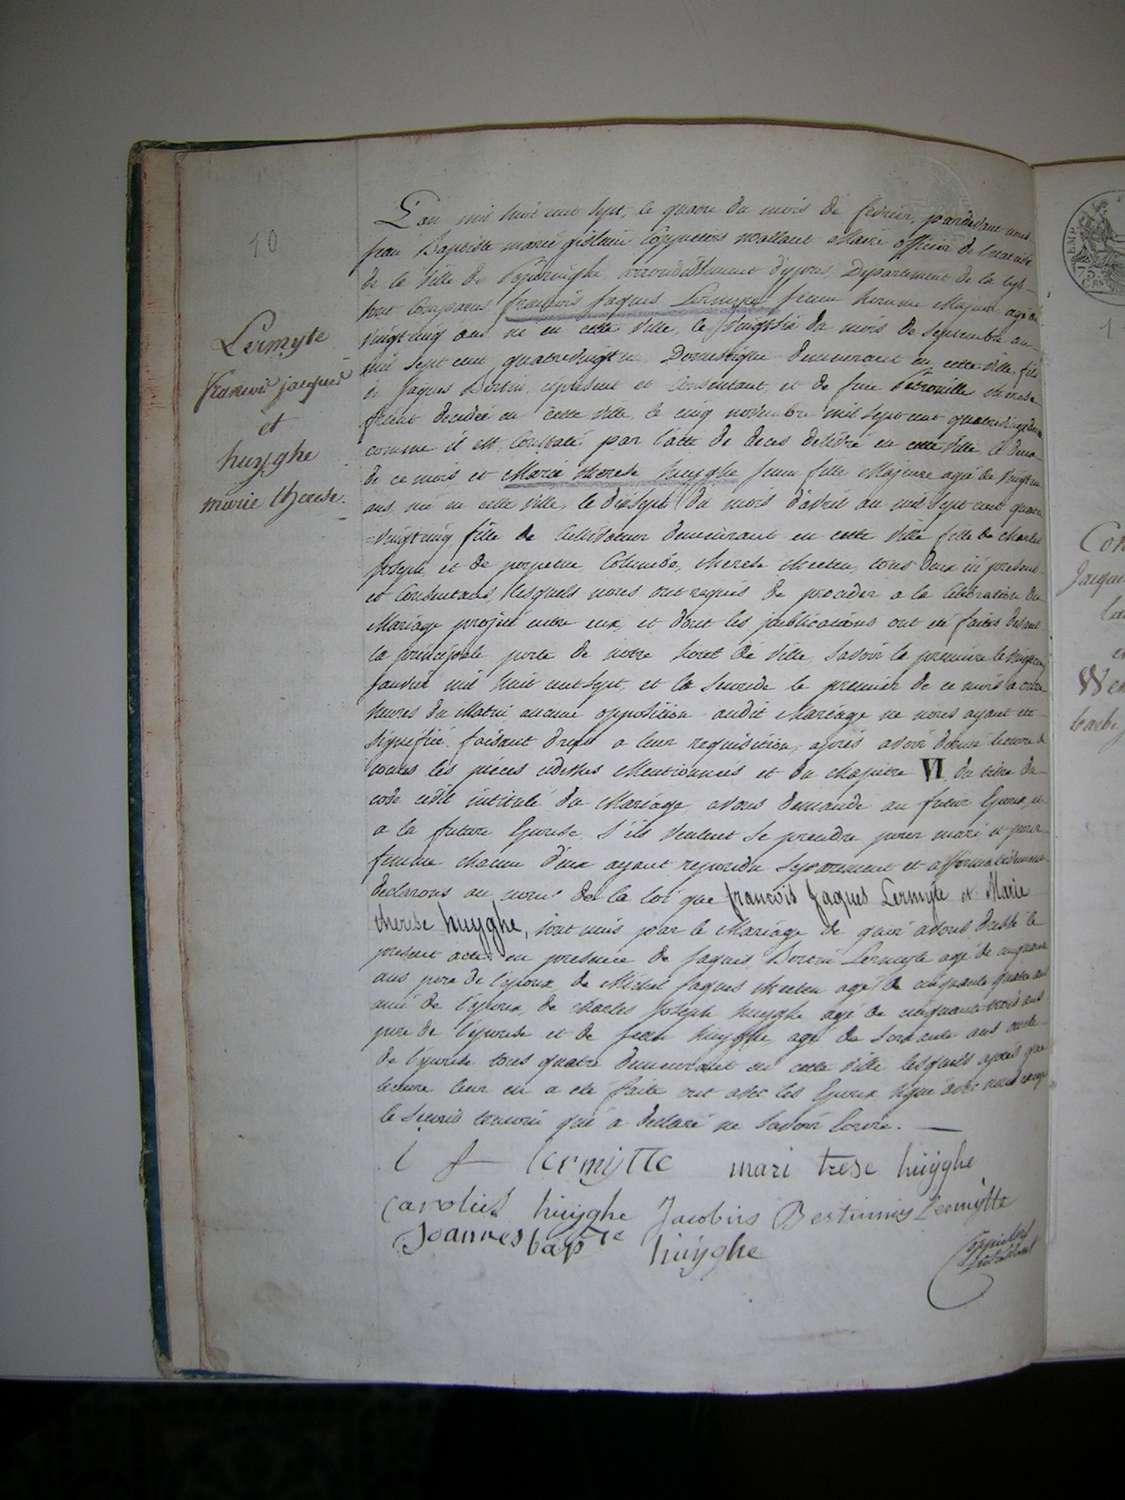 10
Lermyte
françois jacques
et
huyghe
marie therese.
L'an mil huit cent sept, le quatre du mois de fevrier, pardevant nous
jean Baptiste marie gislein Coppieters Wallant Maire officier de l'etat civil
de la Ville de Poperinghe arrondissement d'ypres, Departement de la Lys
sont Comparus françois Jaques Lermyte jeune homme Majeur agé de
vingtcinq ans né en cette Ville, le du mois de Septembre an
mil sept cent quatrevingt un Domestique demeurant en cette ville fils
de Jaques Bertin, cipresent et Consentant, et de feue Petronille therese
decedée en cette Ville, le cinq novembre mil sept cent quatrevingt
comme il est Constaté par l'acte de deces delivré en cette Ville le deux
de ce mois et Marie therese huyghe jeune fille Majeure agé de vingt un
ans née en cette Ville, le dixsept du mois d'avril an mil sept cent quatre
vingtcinq fille de demeurant en cette Ville fille de Charles
Joseph et de perpetue Columba, therese tous deux ici presents
et Consentans, lesquels nous ont requis de proceder a la Celebration du
Mariage projeté entre eux et dont les publications ont été faites devant
la principale porte de notre hotel de Ville, Savoir la premiere le vingtcinq
janvier mil huit cent sept, et la Seconde le premier de ce mois a onze
heures du Matin aucune opposition audit Mariage ne nous ayant été
signifiée, faisant droit a leur requisition, après avoir donné lecture de
toutes les pièces cidessus Mentionnées et du chapitre VI du titre du
code civil intitulé du Mariage avons demandé au futur Epoux, et
a la future Epouse, s'ils veulent se prendre pour mari et pour
femme chacun d'eux ayant repondu Separement et affirmativement
declarons au nom de la loi que françois Jaques Lermyte et Marie
therese huyghe, sont unis par le Mariage de quoi avons dressé le
present acte en presence de Jaques Bertin Lermyte agé de cinquante
ans pere de l'epoux, de Michel Jaques agé de cinquante quatre ans
ami de l'epoux, de Charles Joseph huyghe agé de cinquante trois ans
pere de l'epouse et de Jean huyghe agé de Soixante ans oncle
de l'epouse tous quatre demeurant en cette Ville lesquels après que
lecture leur en a été faite ont avec les Epoux signé avec nous excepté
le Second temoin qui a declaré ne Savoir Ecrire.
i f lermytte mari trese huijghe
Carolus huijghe Jacobus Bertinnus Lermijtte
Joannes bapte huijghe
Coppieters
EMP
75
1
Con
Jacques
la
et
Wen
barbe